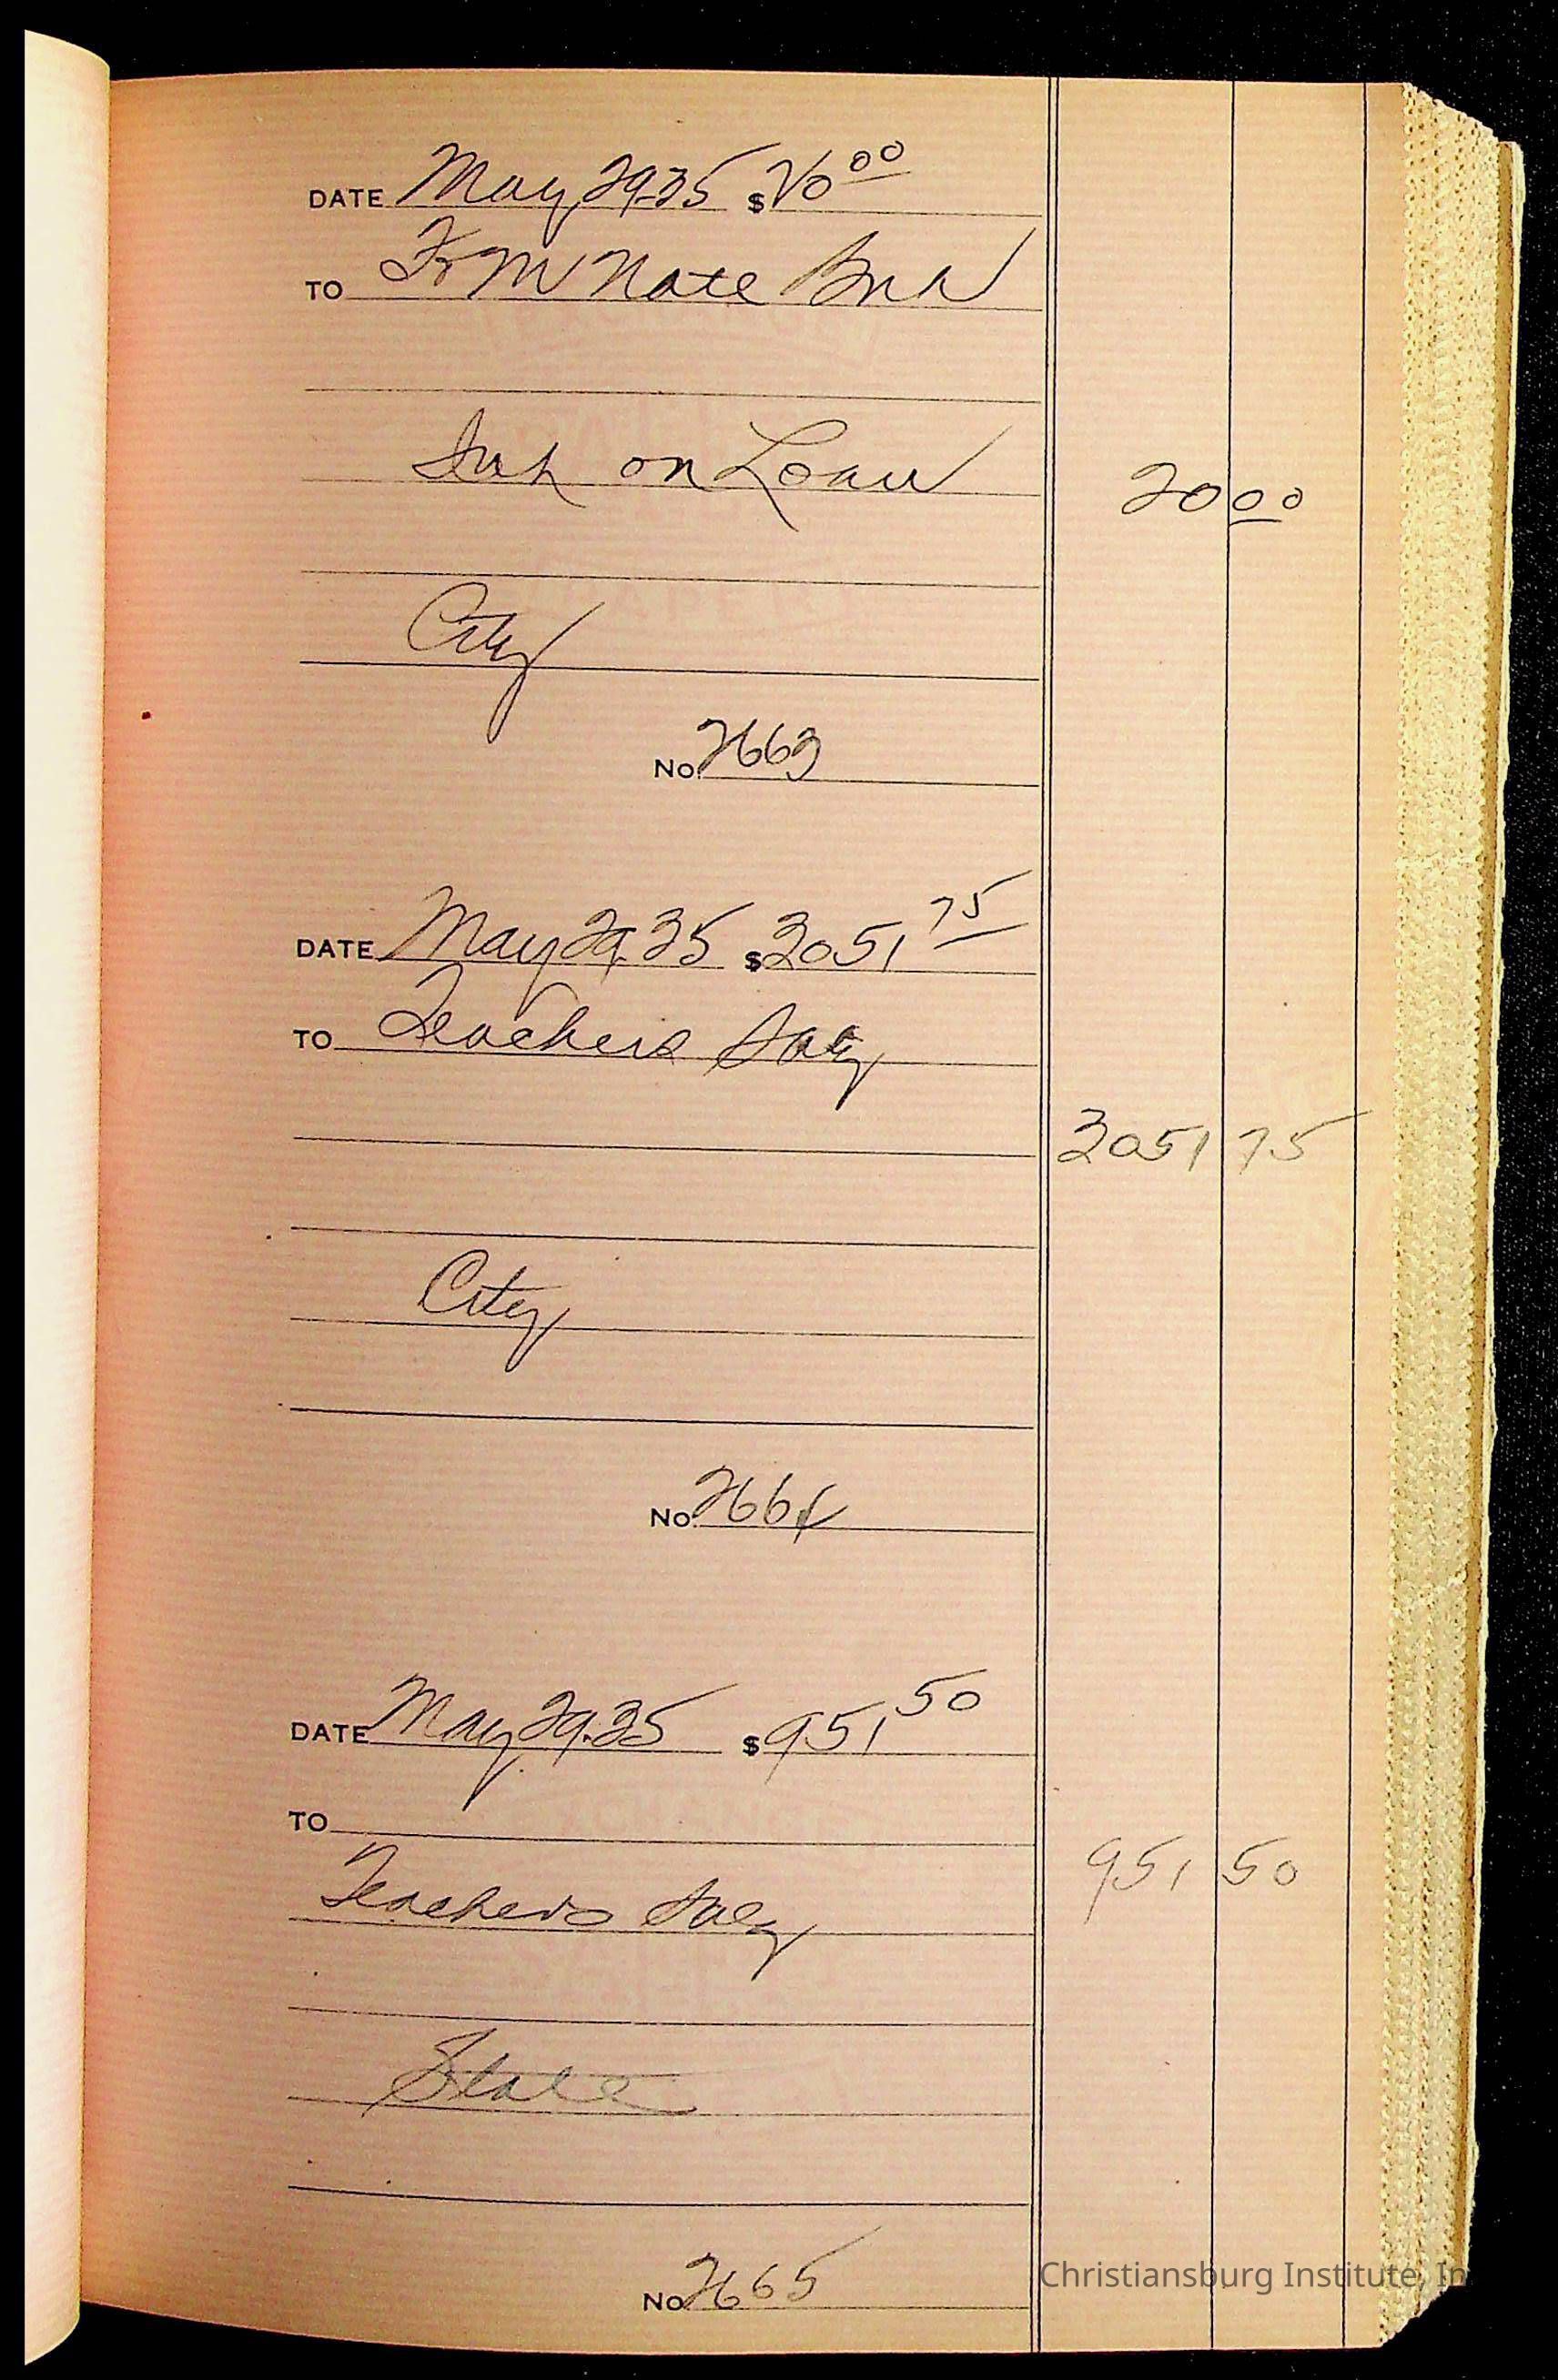 DATE May 29-35 $20 00
TO F & M Nate Bnk
Int on Loan 20 00
City
No. 2663
DATE May 29.35 $3051 75
TO Teachers Saly
3051 75
City
No. 2664
DATE May 29.35 $951 50
TO
951 50
Teachers Saly
State
No 2665
Christiansburg Institute, In